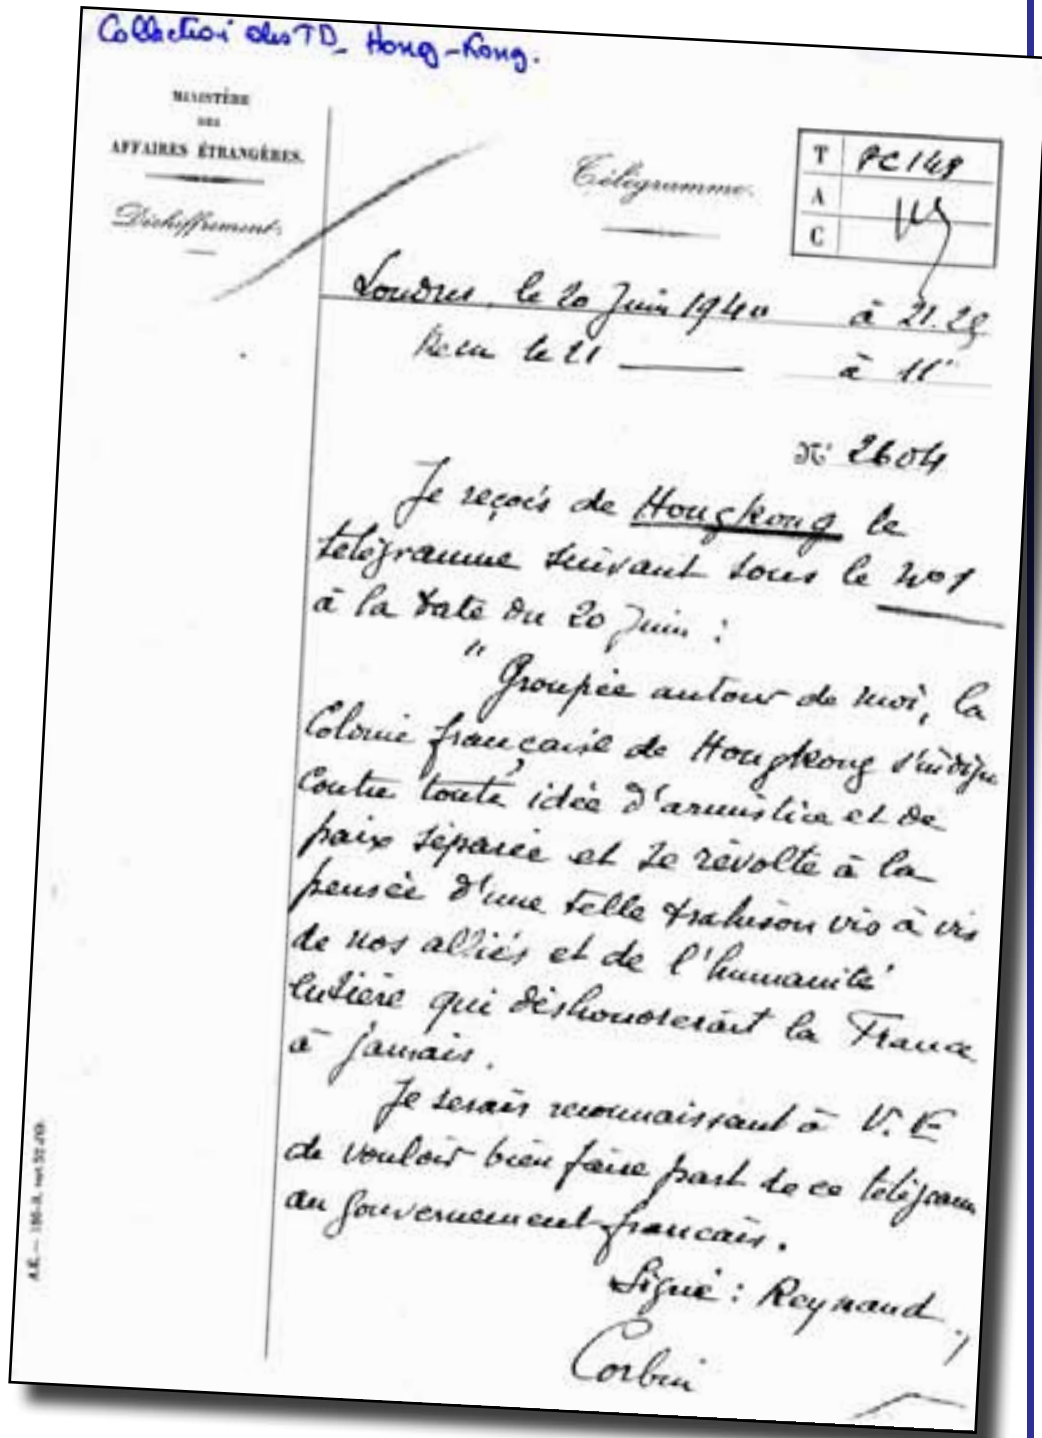 Collection des TD_ Hong-Kong.
MINISTÈRE
DES
AFFAIRES ÉTRANGÈRES.
Déchiffrement.
Télégramme.
T PC 148
A
C
Londres, le 20 Juin 1940 à 21.25
Recu le 21 à 11"
N° 2604
Je reçois de Hongkong le
télégramme suivant sous le N° 1
à la date du 20 Juin :
"Groupée autour de moi, la
Colonie française de Hongkong s'indigne
contre toute idée d'armistice et de
paix séparée et se révolte à la
pensée d'une telle trahison vis à vis
de nos alliés et de l'humanité
entière qui déshonorerait la France
à jamais.
Je serais reconnaissant à V. E
de vouloir bien faire part de ce télégramme
au gouvernement français.
Signé : Reynaud.,
Corbin